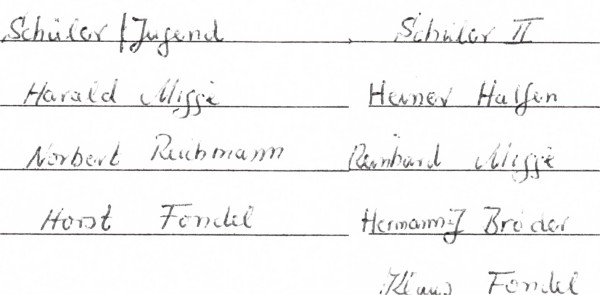 Schüler / Jugend Schüler II
Harald Migge Heiner Halfen
Norbert Reichmann Reinhard Migge
Horst Fondel Hermann J Bröder
Klaus Fondel